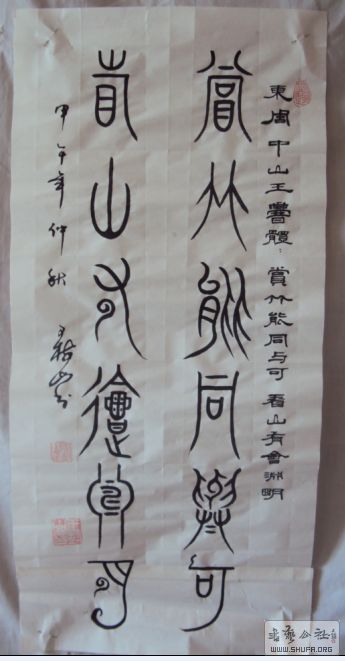 東周中山王體：賞竹能同与可 看山有會淵明
賞竹能同與可
看山有會淵明
甲午年仲秋
书艺公社
WWW.SHUFA.ORG